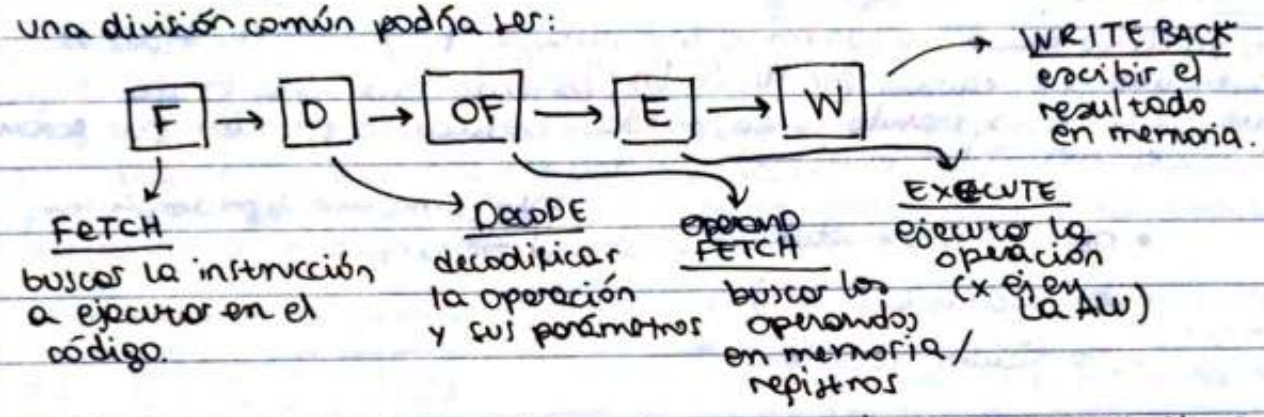 una división común podría ser:
F → D → OF → E → W
WRITE BACK
escribir el
resultado
en memoria.
FETCH
buscar la instrucción
a ejecutar en el
código.
DECODE
decodificar
la operación
y sus parámetros
OPERAND
FETCH
buscar los
operandos
en memoria/
registros
EXECUTE
ejecutar la
operación
(x ej en
la ALU)